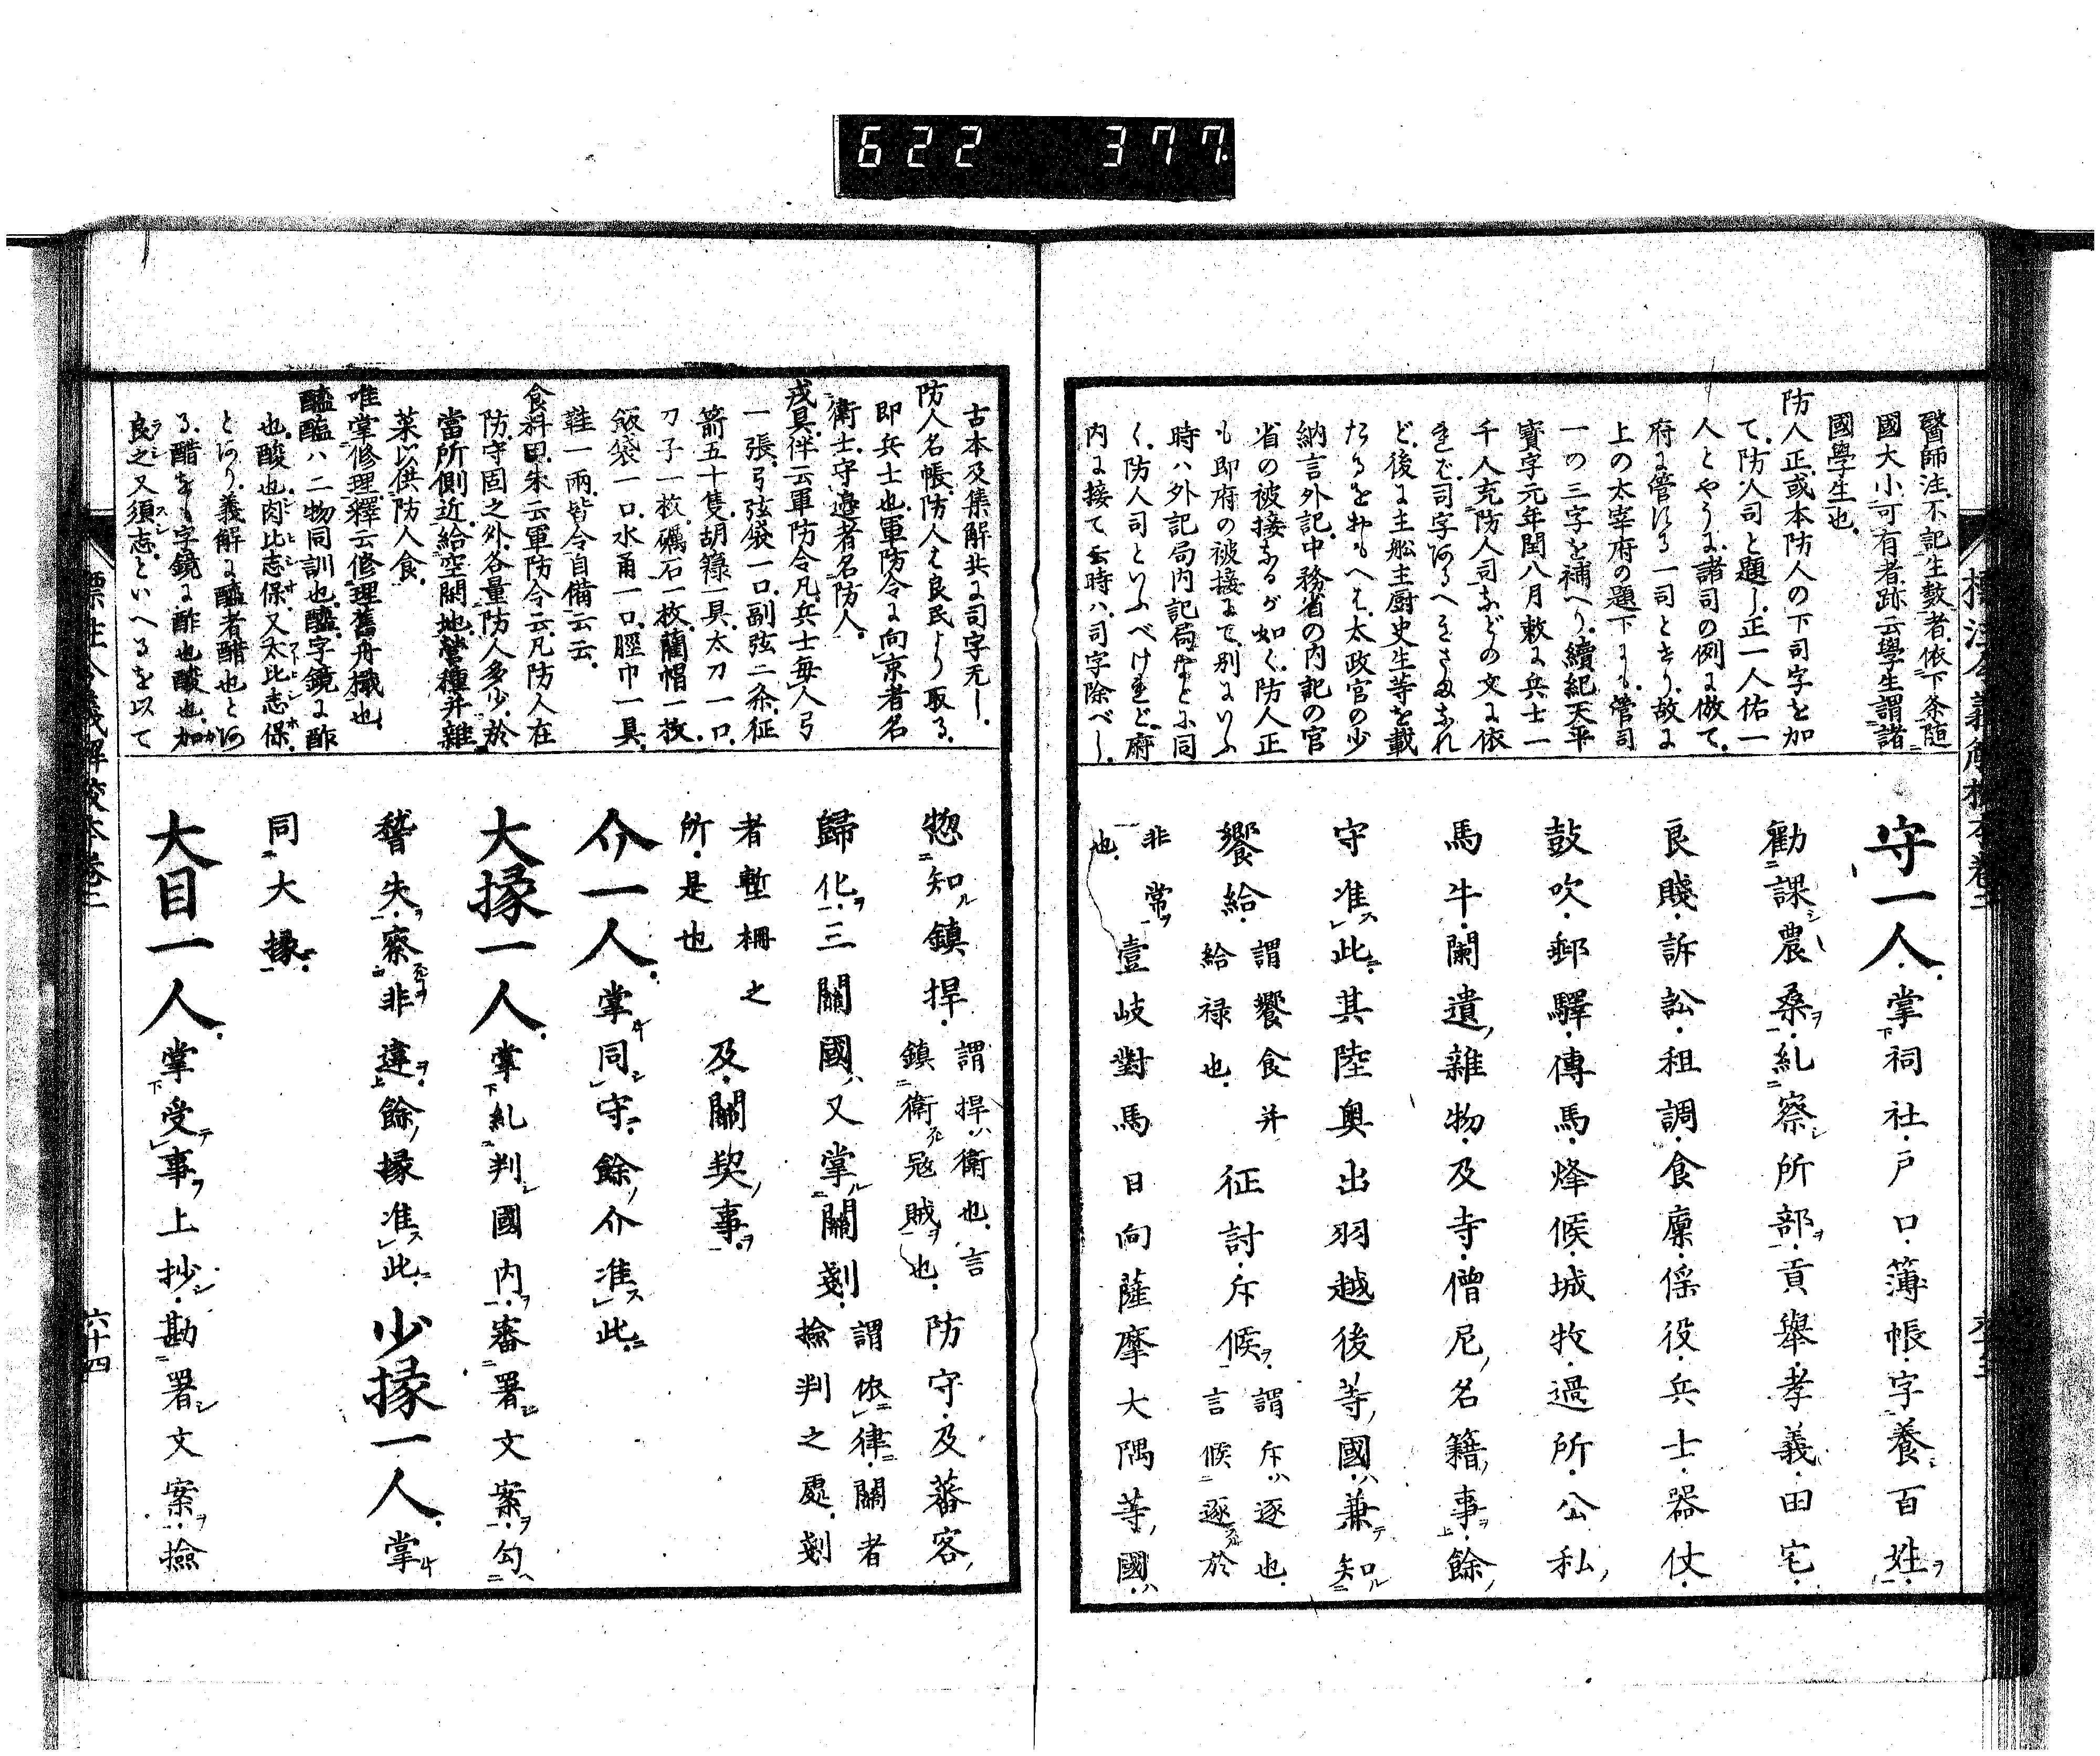 622 377
醫師注、不記生數者、依下条随
國大小可有者、跡云學生謂諸
國學生也、
防人正、或本防人の下司字を加
て、防人司と題し、正一人佑一
人とやうに、諸司の例に倣て、
府に管ける一司とせり、故に
上の太宰府の題下にも、管司
一の三字を補へり、續紀天平
寳字元年閏八月敕に兵士一
千人充防人司などの文に依
れば、司字あるべきさまなれ
ど、後に主舩主厨史生等を載
たるをおもへば、太政官の少
納言外記、中務省の内記の官
省の被接なるが如く、防人正
も即府の被接にて、別にいふ
時ハ外記局内記局などに同
く、防人司といふべけれど、府
内に接て云時ハ、司字除べし、
守一人、掌祠社、戸口、簿帳、字養百姓、
勸課農桑、糺察所部、貢舉、孝義、田宅、
良賤、訴訟、租調、食廩、徭役、兵士、器仗、
鼓吹、郵驛、傳馬、烽候、城牧、過所、公私
馬牛、闌遺雜物、及寺、僧尼名籍事、餘
守准此、其陸奥出羽越後等國、兼知
饗給、謂饗食并給禄也、征討、斥候、謂斥ハ逐也、言候逐於
非常也、壹岐對馬日向薩摩大隅等國、
古本及集解共に司字无し、
防人名帳、防人は良民より取る、
即兵士也、軍防令に向京者名
衛士、守邉者名防人、
戎具、伴云軍防令凡兵士毎人弓
一張、弓弦袋一口、副弦二条、征
箭五十隻、胡簶一具、太刀一口、
刀子一枚、礪石一枚、藺帽一枚、
飯袋一口、水甬一口、脛巾一具、
鞋一兩、皆令自備云云、
食料田、朱云軍防令云、凡防人在
防、守固之外、各量防人多少、於
當所側近、給空閑地、營種并雜
菜以供防人食、
唯掌修理、釋云修理舊舟檝也、
醢醢ハ二物同訓也、醢字鏡に酢
也、酸也、肉比志保、又太比志保、
とあり、義解に醢者醋也とあ
る、醋をも字鏡に酢也酸也、加
良之又須志、といへるを以て
惣知鎮捍、謂捍ハ衛也、言鎮衛冦賊也、防守、及蕃客、
歸化、三關國ハ又掌關剗、謂依律、關者檢判之處、剗
者塹柵之所、是也及、關契事、
介一人、掌同守、餘介准此、
大掾一人、掌糺判國内、審署文案、勾
稽失、察非違、餘掾准此、少掾一人、掌
同大掾、
大目一人、掌受事上抄、勘署文案、檢
六十四